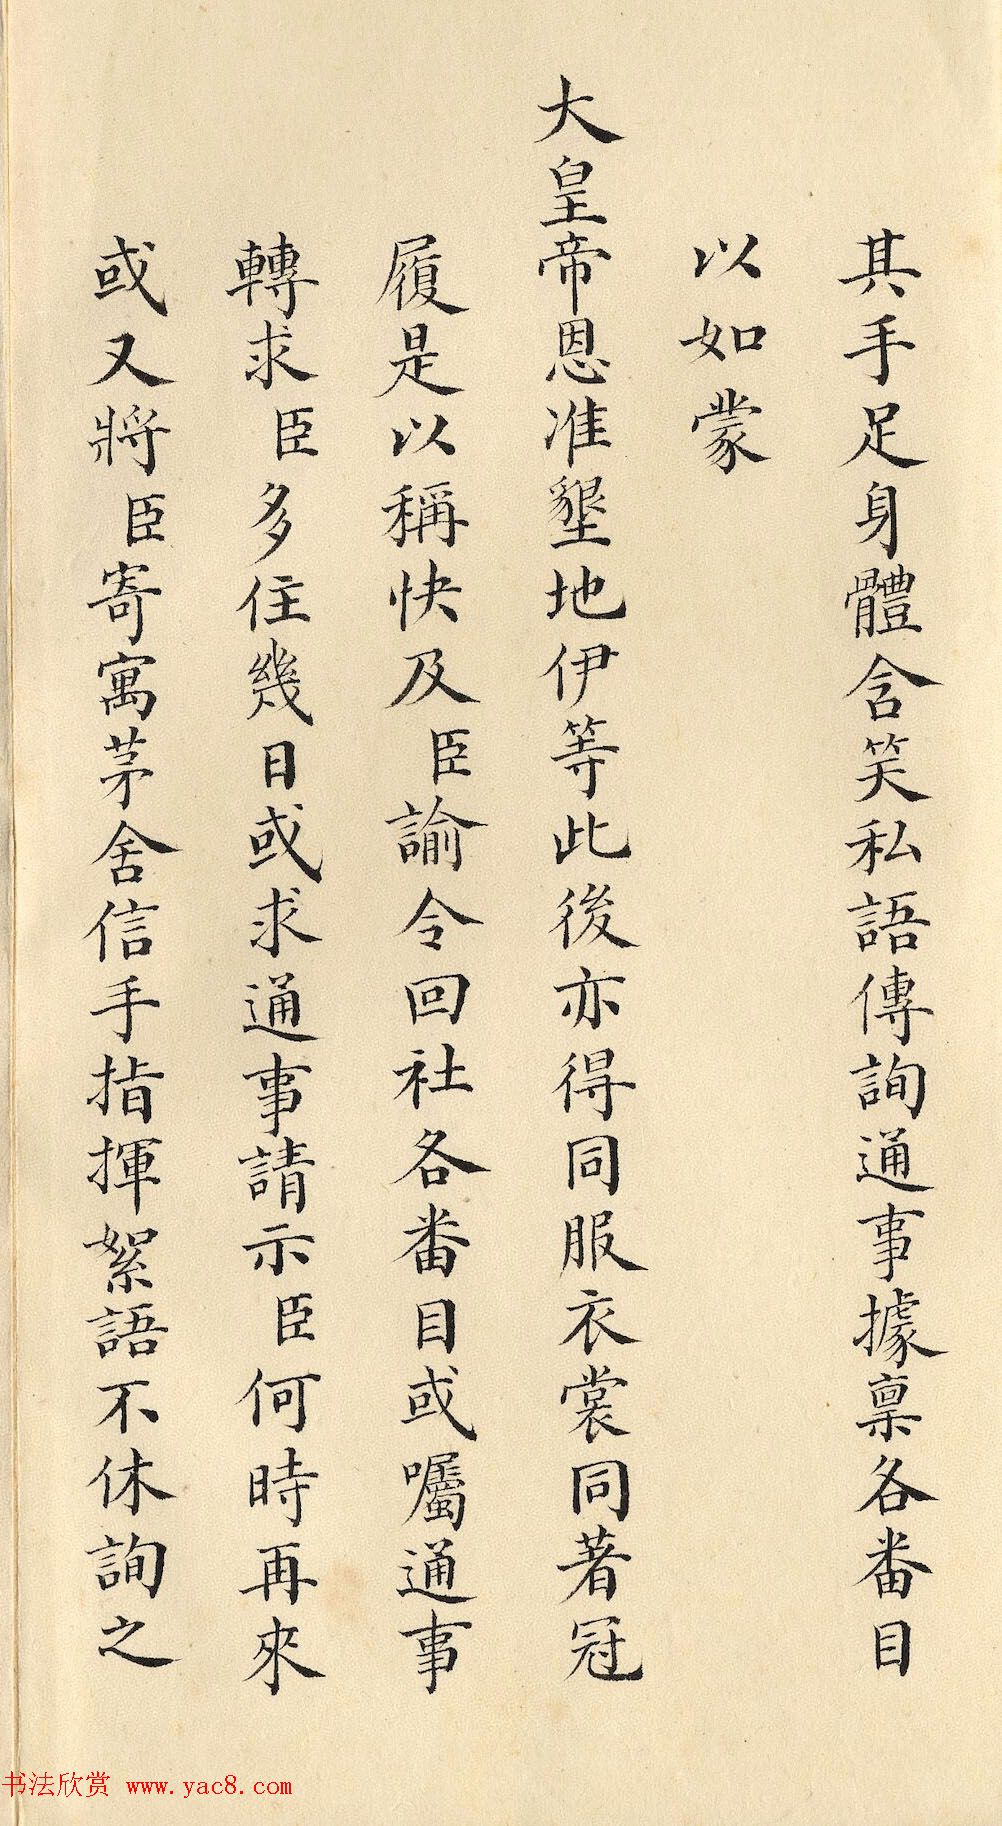 其手足身體含笑私語傳詢通事據稟各番目
以如蒙
大皇帝恩准墾地伊等此後亦得同服衣裳同著冠
履是以稱快及臣諭令回社各番目或囑通事
轉求臣多住幾日或求通事請示臣何時再來
或又將臣寄寓茅舍信手指揮絮語不休詢之
书法欣赏 www.yac8.com